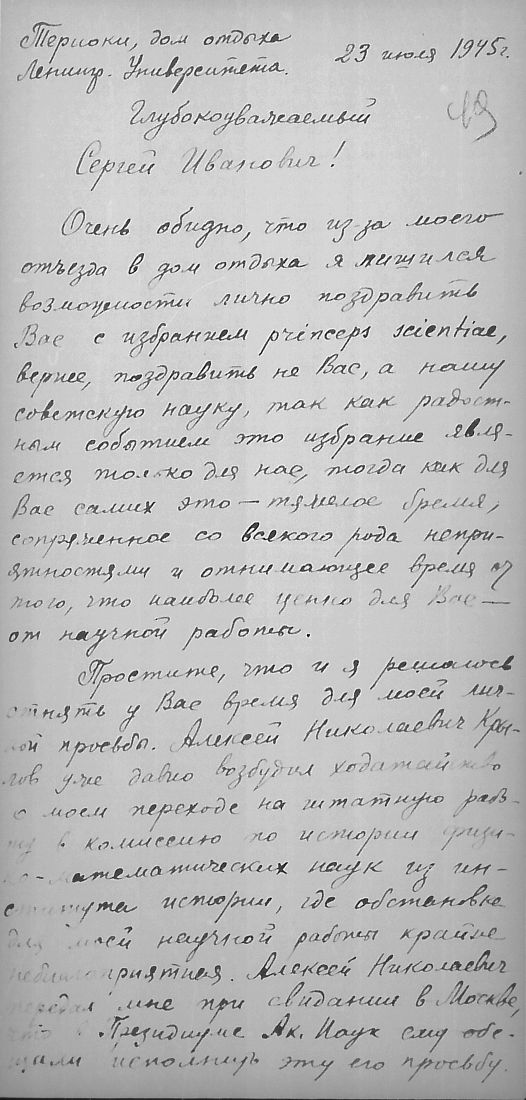 Териоки, дом отдыха
Ленингр. Университета.
23 июля 1945 г.
Глубокоуважаемый
Сергей Иванович!
Очень обидно, что из-за моего
отъезда в дом отдыха я лишился
возможности лично поздравить
Вас с избранием princeps scientiae,
вернее, поздравить не Вас, а нашу
советскую науку, так как радост-
ным событием это избрание явля-
ется только для нас, тогда как для
Вас самих это — тяжелое бремя,
сопряженное со всякого рода непри-
ятностями и отнимающее время от
того, что наиболее ценно для Вас —
от научной работы.
Простите, что и я решаюсь
отнять у Вас время для моей лич-
ной просьбы. Алексей Николаевич Кры-
лов уже давно возбудил ходатайство
о моем переходе на штатную рабо-
ту в комиссию по истории физи-
ко-математических наук из ин-
ститута истории, где обстановка
для моей научной работы крайне
неблагоприятная. Алексей Николаевич
передал мне при свидании в Москве,
что в Президиуме Ак. Наук ему обе-
щали исполнить эту его просьбу.